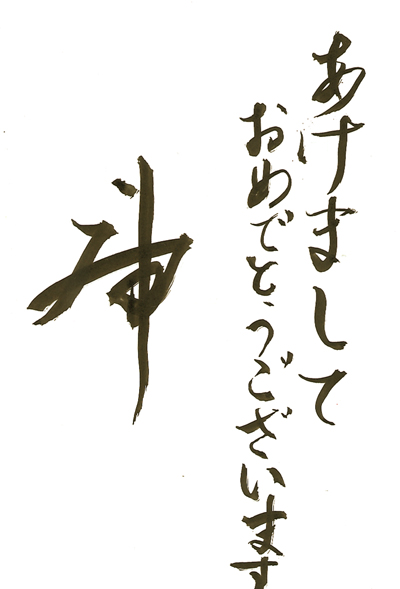 あけまして
おめでとうございます
神